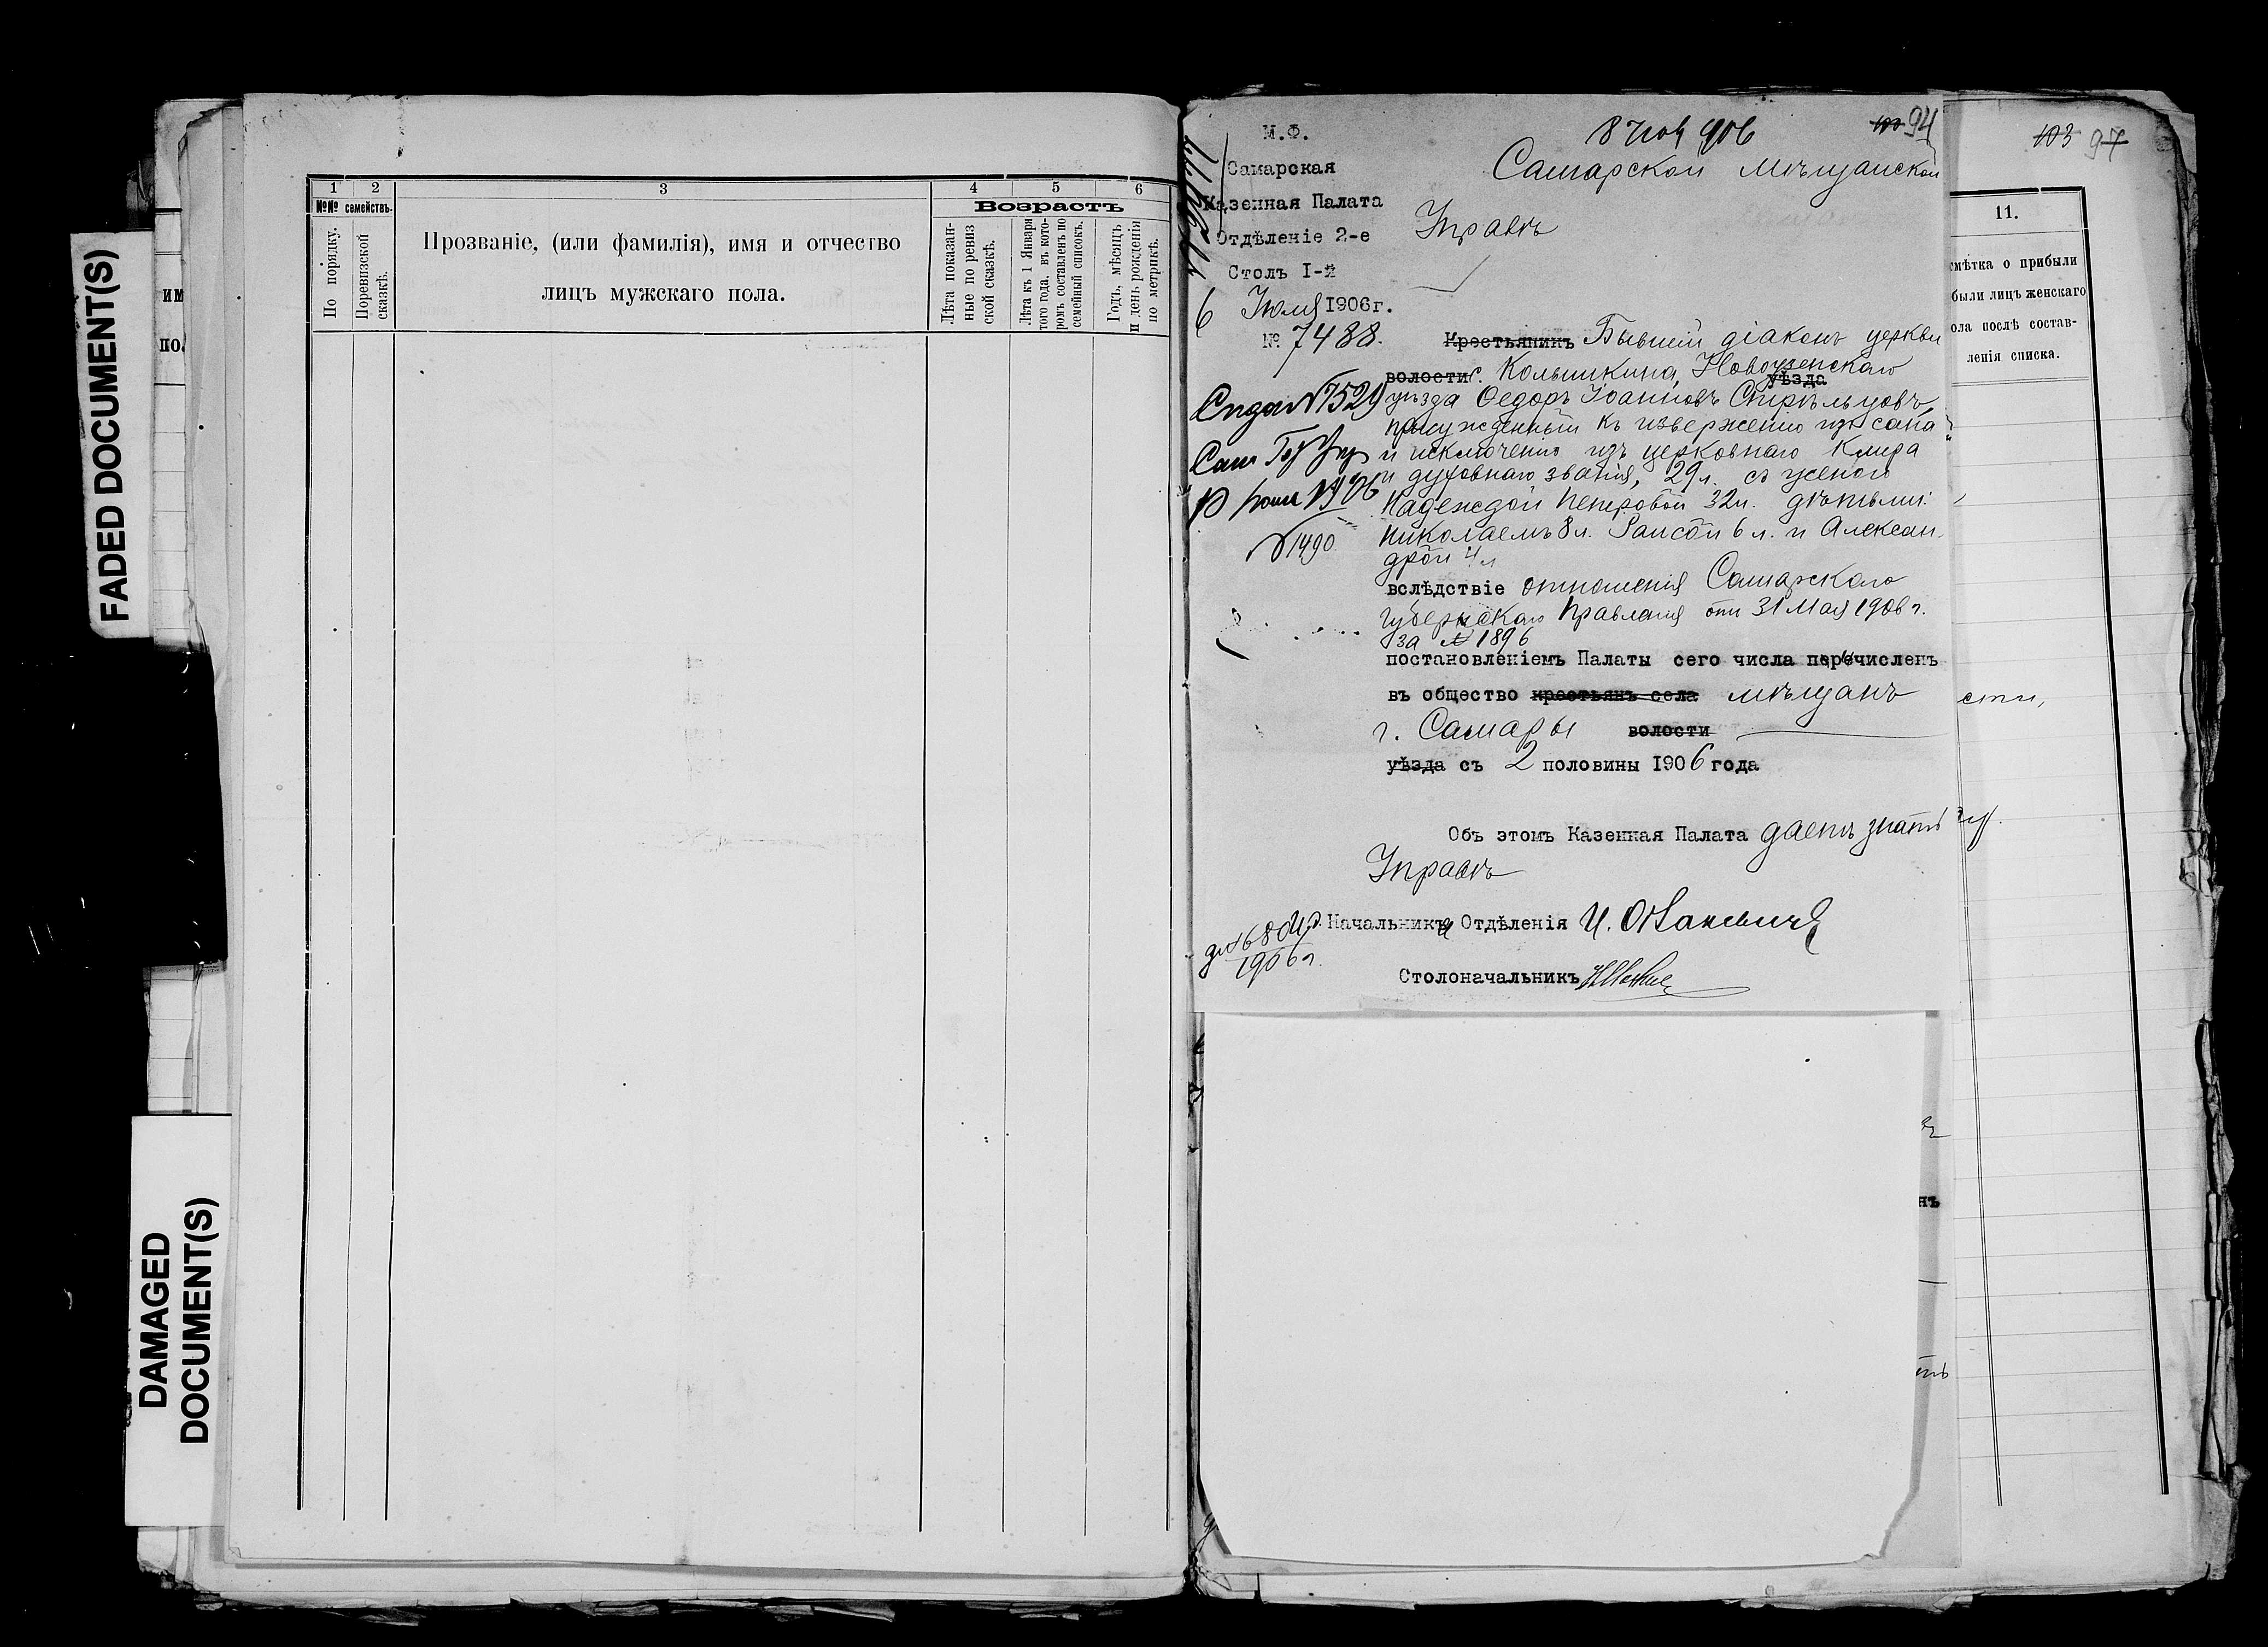 FADED DOCUMENT(S)
DAMAGED
DOCUMENT(S)
им
по
1 2 3 4 5 6
№№ семействъ.
По порядку.
По ревизской
сказкѣ.
Прозваніе, (или фамилія), имя и отчество
лицъ мужскаго пола.
Возрастъ
Лѣта показан-
ные по ревиз
ской сказкѣ.
Лѣта къ 1 Января
того года, въ кото-
ромъ составленъ по
семейный списокъ.
Годъ, мѣсяцъ
и день рожденія
по метрикѣ.
М.Ф.
Самарская
Казенная Палата
Отдѣленіе 2-е
Столъ I-й
6 Июля 1906г.
№ 7488.
8 Июля 906
100 94
Самарской Мѣщанской
Управѣ
Крестьянинъ Бывшій діаконъ церкви
волости с. Колышкина, Новоузенскаго
уѣзда
уѣзда Ѳедоръ Іоанновъ Стрѣльцовъ,
присужденный къ изверженію изъ сана
и исключенію изъ церковнаго клира
и духовнаго званія, 29 л. съ женою
Надеждой Петровой 32 л. дѣтьми:
Николаемъ 8 л. Раисой 6 л. и Алексан-
дрой 4 л
вслѣдствіе отношенія Самарскаго
Губернскаго Правленія отъ 31 Мая 1906 г.
за № 1896
постановленіемъ Палаты сего числа перечисленъ
въ общество крестьянъ села мѣщанъ
г. Самары волости
уѣзда съ 2 половины 1906 года
Объ этомъ Казенная Палата даетъ знать
Управѣ
№ 7529
1490
1906 г.
Начальника Отдѣленія
Столоначальникъ
103 97
11.
мѣтка о прибыли
были лицъ женскаго
ола послѣ состав-
ленія списка.
сти,
нъ
ть